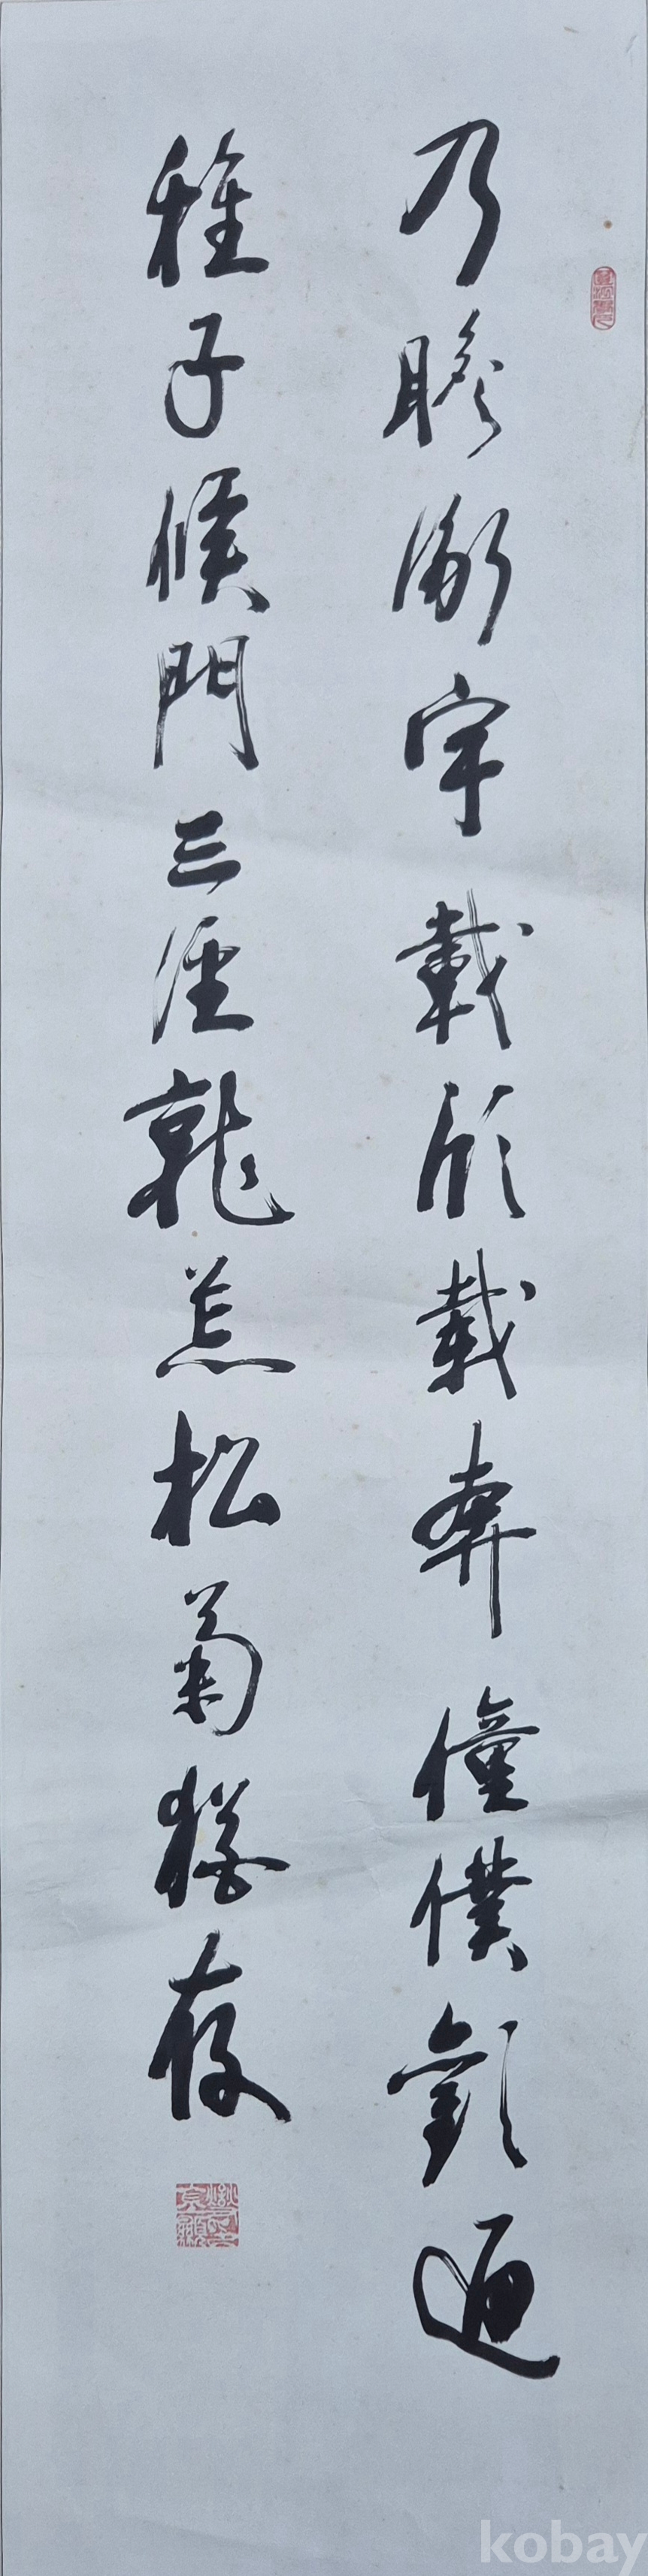 乃瞻衡宇載欣載奔僮僕歡迎
稚子候門三逕就荒松菊猶存
kobay